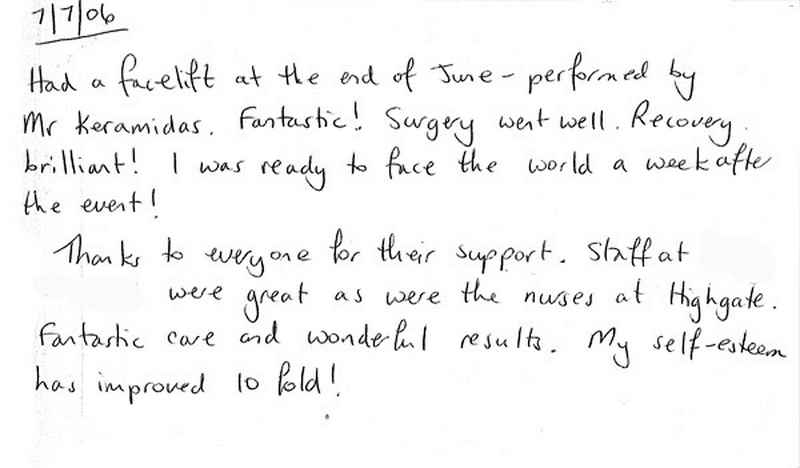 7/7/06
Had a facelift at the end of June - performed by
Mr Keramidas. Fantastic! Surgery went well. Recovery
brilliant! I was ready to face the world a week after
the event!
Thanks to everyone for their support. Staff at
were great as were the nurses at Highgate.
Fantastic care and wonderful results. My self-esteem
has improved 10 fold!